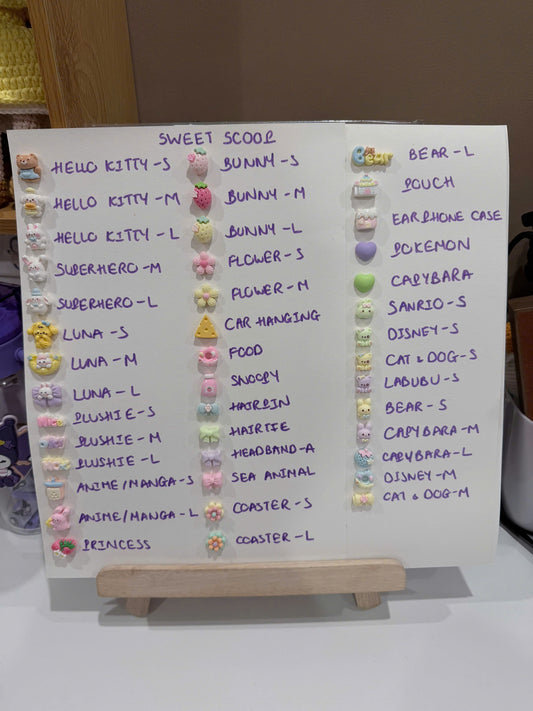 SWEET SCOOP
HELLO KITTY-S
HELLO KITTY-M
HELLO KITTY-L
SUPERHERO-M
SUPERHERO-L
LUNA-S
LUNA-M
LUNA-L
PLUSHIE-S
PLUSHIE-M
PLUSHIE-L
ANIME/MANGA-S
ANIME/MANGA-L
PRINCESS
BUNNY-S
BUNNY-M
BUNNY-L
FLOWER-S
FLOWER-M
CAR HANGING
FOOD
SNOOPY
HAIRPIN
HAIRTIE
HEADBAND-A
SEA ANIMAL
COASTER-S
COASTER-L
Bear BEAR-L
POUCH
EARPHONE CASE
POKEMON
CAPYBARA
SANRIO-S
DISNEY-S
CAT & DOG-S
LABUBU-S
BEAR-S
CAPYBARA-M
CAPYBARA-L
DISNEY-M
CAT & DOG-M